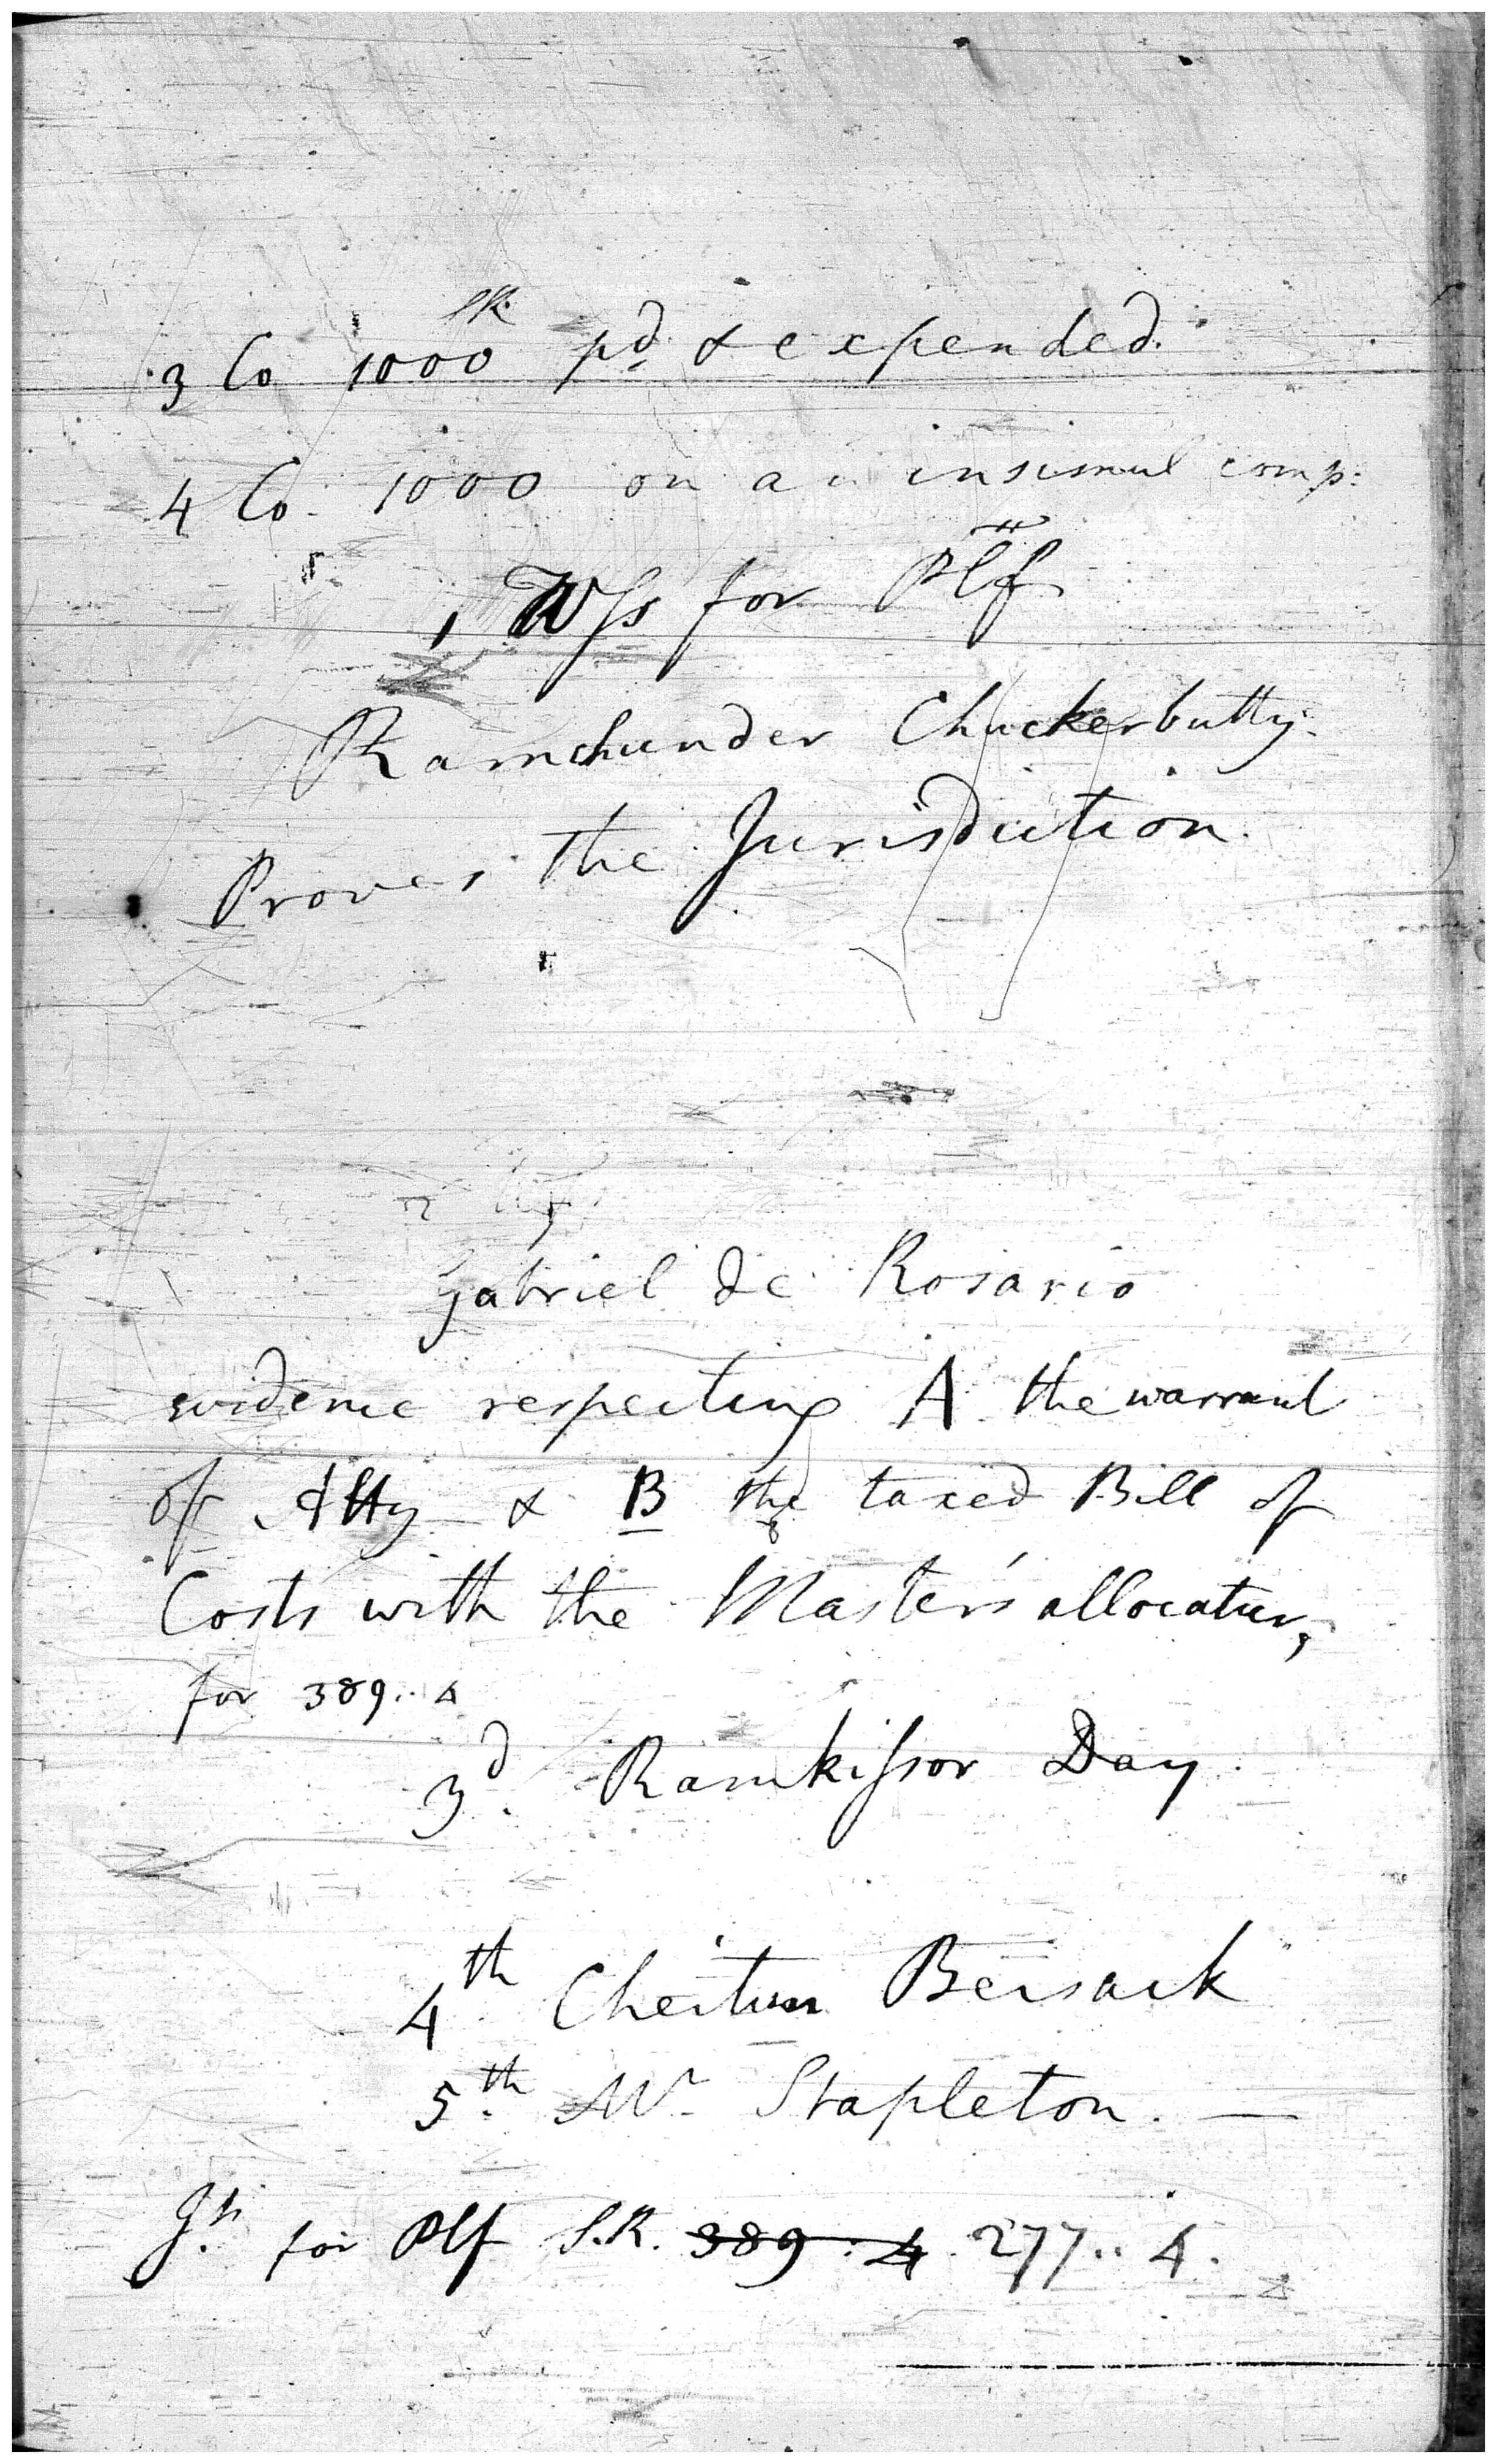 SR.
3 Co 1000 pd & expended.
4 Co. 1000 on an insimul comp:
1 Wss for Plff
Ramchunder Chuckerbutty.
Proves the Jurisdiction.
Gabriel de Rosario
evidence respecting A the warrant
of Atty & B the taxed Bill of
Costs with the Master's allocatur,
for 389..4
3d. Ramkissor Day.
4th Cheitun Bersack
5th Mr Stapleton. —
for Plf S.R. 389..4 277..4.